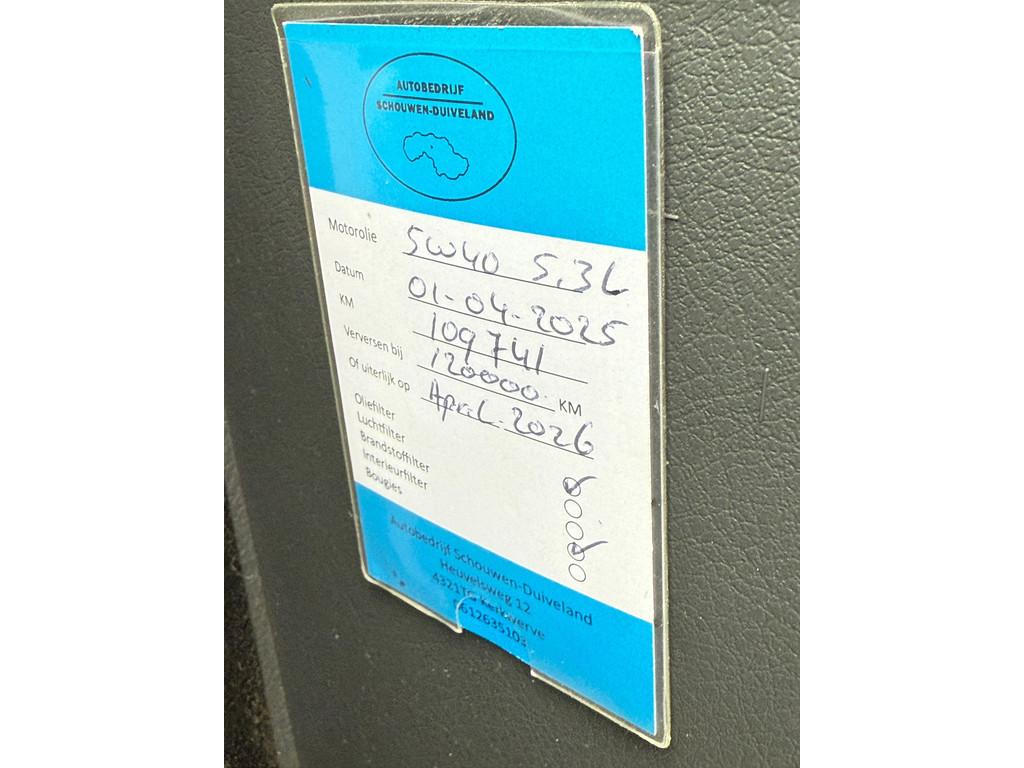 AUTOBEDRIJF
SCHOUWEN-DUIVELAND
Motorolie 5W40 5,3L
Datum 01-04-2025
KM 109741
Verversen bij 120000 KM
Of uiterlijk op April 2026
Oliefilter
Luchtfilter
Brandstoffilter
Interieurfilter
Bougies
Autobedrijf Schouwen-Duiveland
Heuvelsweg 12
4321TG Kerkwerve
0612635103